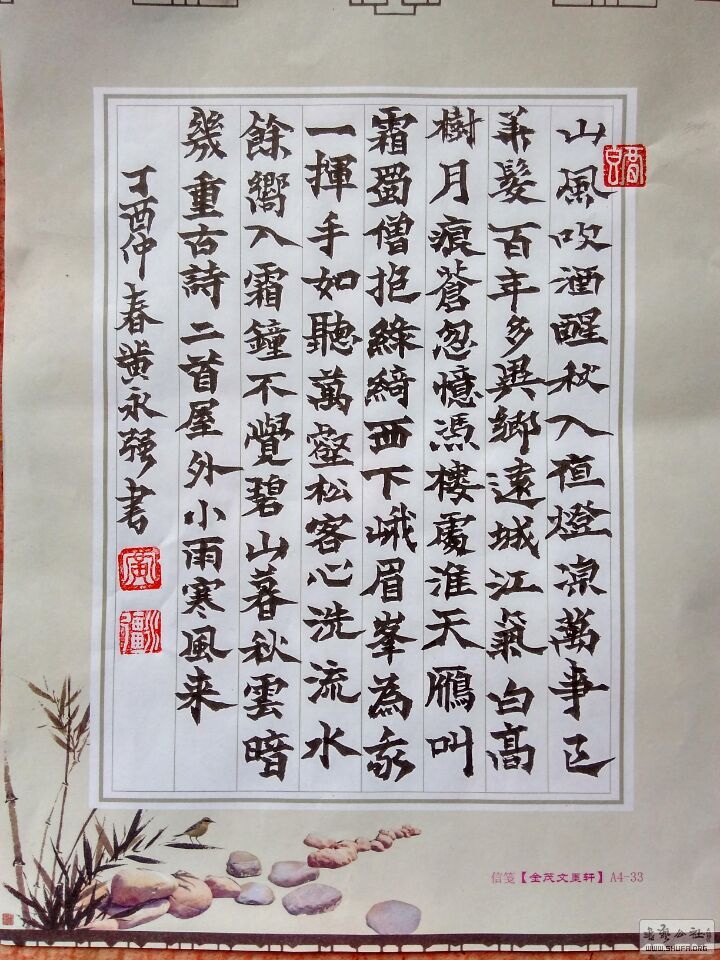 山風吹酒醒秋入夜燈涼萬事已
華髮百年多異鄉遠城江氣白高
樹月痕蒼忽憶憑樓處淮天雁叫
霜蜀僧抱綠綺西下峨眉峯為我
一揮手如聽萬壑松客心洗流水
餘響入霜鐘不覺碧山暮秋雲暗
幾重古詩二首屋外小雨寒風来
丁酉仲春黄永强书
信笺【金茂文熏轩】A4-33
WWW.SHUFA.ORG